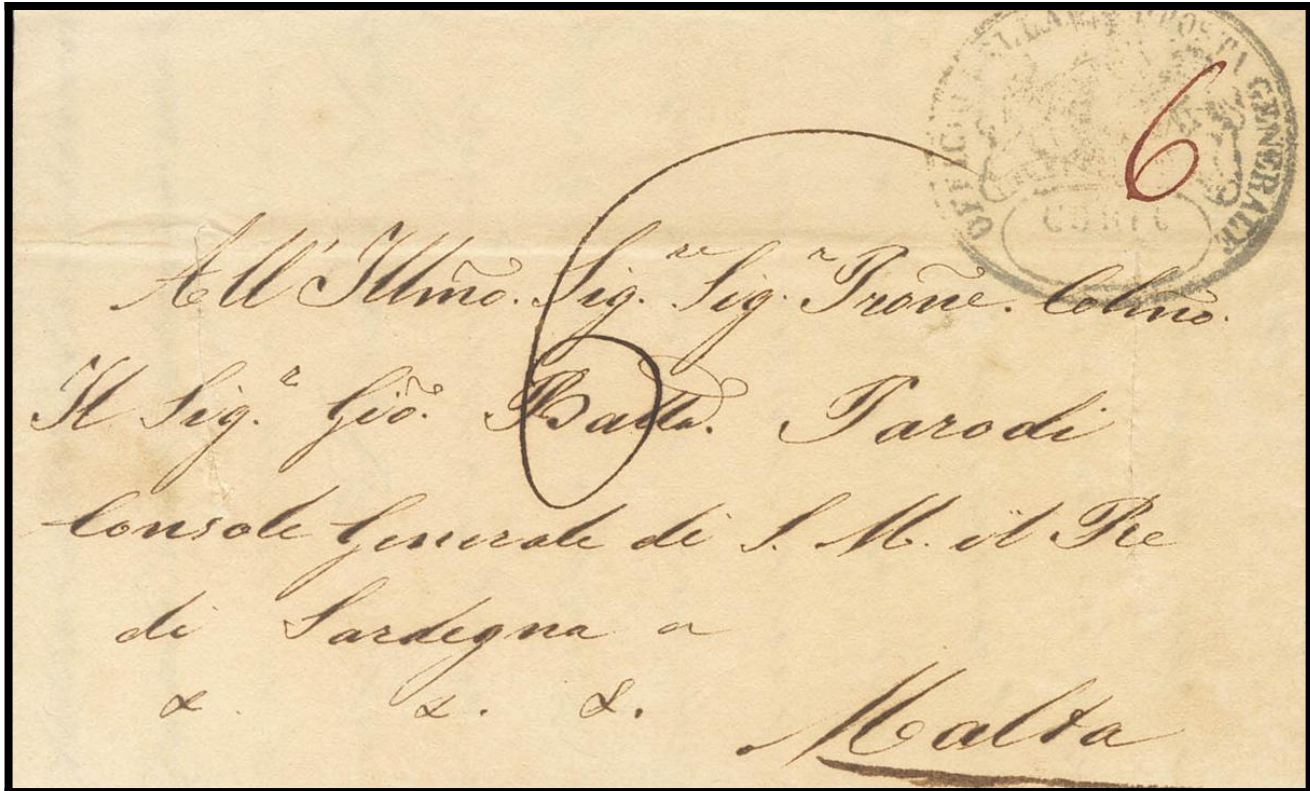 OFFICIO DELLA POSTA GENERALE
CORFU
6
6
All' Illmo. Sigre. Sigr. Prone. Colmo.
Il Sigr. Gio. Batta. Parodi
Console Generale di S. M. il Re
di Sardegna a
&. &. &.
Malta